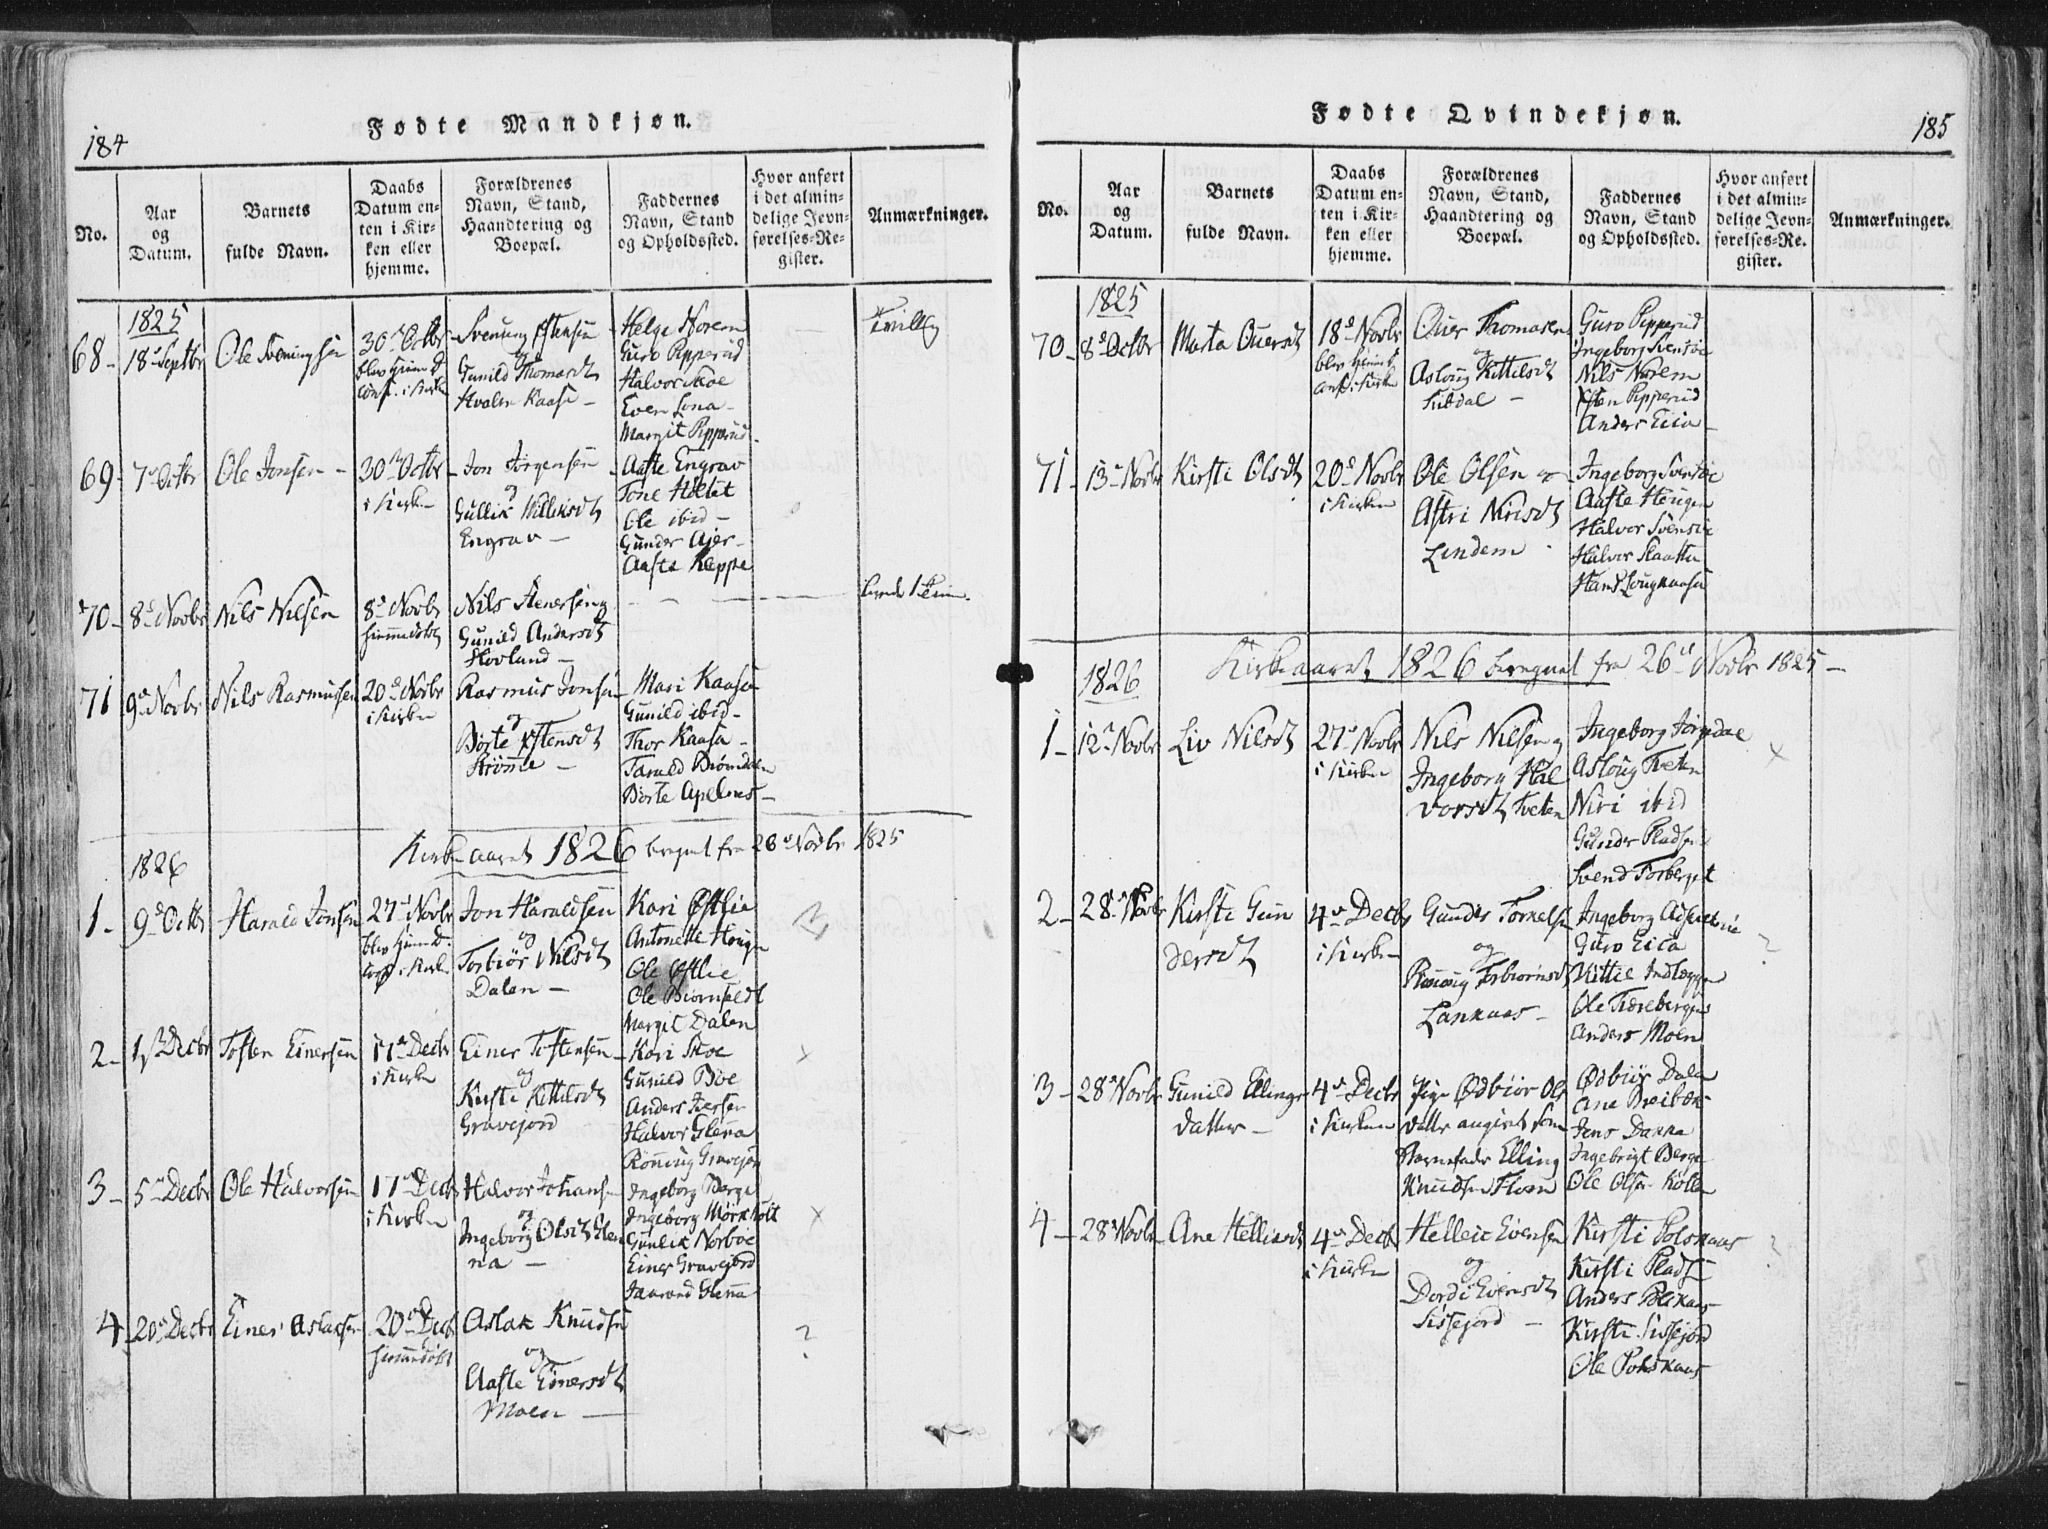 184
Fødte Mandkjøn.
No.
Aar
og
Datum.
Barnets
fulde Navn.
Daabs
Datum en-
ten i Kir-
ken eller
hjemme.
Forældrenes
Navn, Stand,
Haandtering og
Boepæl.
Faddernes
Navn, Stand
og Opholdssted.
Hvor anført
i det almin-
delige Jevn-
førelses-Re-
gister.
Anmærkninger.
1825
68 -
18 Septbr
Ole Sveningsen
30 Octbr
blev hjemd
conf. i Kirke
Svenung Østensen
og
Gunild Thomasdt
Hvalen Kaasa -
Helge Norem
Guro Pipperud
Halvor Skoe
Even Lona
Margit Pipperud
Tvilling
69 -
7 Octbr
Ole Jonsen -
30 Octbr
i Kirken
Jon Jørgensen
og
Gullik Willeksdt
Engrav -
Aaste Engrav
Tone Holtet
Ole ibid -
Gunder Ajer -
Aaste Keppe
70 -
8 Novbr
Nils Nilsen
8 Novbr
hiemmedøbt
Nils Stenersen og
Gunild Andersdt
Hovland -
71
9 Novbr
Nils Rasmussen
20 Novbr
i Kirken
Rasmus Jonsen
og
Børte Østensdt
Strømme -
Mari Kaasa
Gunild ibid -
Thor Kaasa -
Tarald Biørndalen
Børte Apelnes -
Kirkeaaret 1826 beregnet fra 26 Novbr 1825
1826
1 -
9 Octbr
Harald Jonsen
27 Novbr
blev hjemd.
conf i Kirke
Jon Haraldsen
og
Torbiør Nilsdt
Dalen -
Kari Østlie
Antonette Hougen
Ole Østlie
Ole Biørnfeldt
Margit Dalen
2 -
1 Decbr
Tosten Einersen
11 Decbr
i Kirken
Einer Tostensen
og
Kirsti Kittelsdt
Gravejord
Kari Skoe
Gunild Boe
Anders Iversen
Halvor Glenna
Rønnug Gravejord
x
3 -
5 Decbr
Ole Halvorsen
17 Decb
i Kirken
Halvor Johansen
og
Ingeborg Olsdt Glen
na -
Ingeborg Berge
Ingeborg Mørkholt
Gunlik Norboe
Einer Gravejord
Jaarand Glenna
x
4
20 Decbr
Einer Aslaksen
20 Decb
hiemmedøbt
Aslak Knudsen
og
Aaste Einersdt
Moen -
?
185
Fødte Qvindekjøn.
No.
Aar
og
Datum.
Barnets
fulde Navn.
Daabs
Datum en-
ten i Kir-
ken eller
hjemme.
Forældrenes
Navn, Stand,
Haandtering og
Boepæl.
Faddernes
Navn, Stand
og Opholdssted.
Hvor anført
i det almin-
delige Jevn-
førelses-Re-
gister.
Anmærkninger.
1825
70 -
8 Octbr
Marta Oversdt
18 Novbr
blev hjemd
conf. i Kirke
Over Thomasen
og
Asloug Kittelsdt
Guro Pipperud
Ingeborg Svenseie
Nils Norem
Østen Pipperud
Anders Eica
71 -
13 Novbr
Kirsti Olsdt
20 Novbr
i Kirken
Ole Olsen og
Astri Nirisdt
Lindem
Ingeborg Svenseie
Aaste Hougen
Halvor Svenseie
Halvor Slaatta
Hans Lougkaasen
Kirkeaaret 1826 beregnet fra 26 Novbr 1825 -
1826
1 -
12 Novbr
Liv Nilsdt
27 Novbr
i Kirken
Nils Nilsen og
Ingeborg Hal
vorsdt Tveten
Ingeborg Jørndal
Asloug Tveten
Niri ibid
Gunder Pladsen
Svend Torberget
x
2 -
28 Novbr
Kirsti Gun
dersdt
4 Decbr
i Kirken
Gunder Torkelsen
og
Rønnug Torbiørnsdt
Lankaas -
Guro Eica
Kittil Indlæggen
Anders Moen
?
3 -
28 Novbr
Gunild Ellings
datter -
4 Decbr
i Kirken
Pige Ødbiør Ols
datter angivet som
Barnefader Elling
Knudsen Floen
Ødbiør Dalen
Ane Breibek
Jens Dakka
Ingebrigt Berge
Ole Olsen Kollen
4 -
28 Novbr
Ane Helliksdt
4 Decb
i Kirken
Helleik Evensen
og
Dordi Evensdt
Sissejord -
Kirsti Polskaas
Kirsti Pladsen
Anders Polskaas
Kirsti Sissejord
Ole Polskaas
?